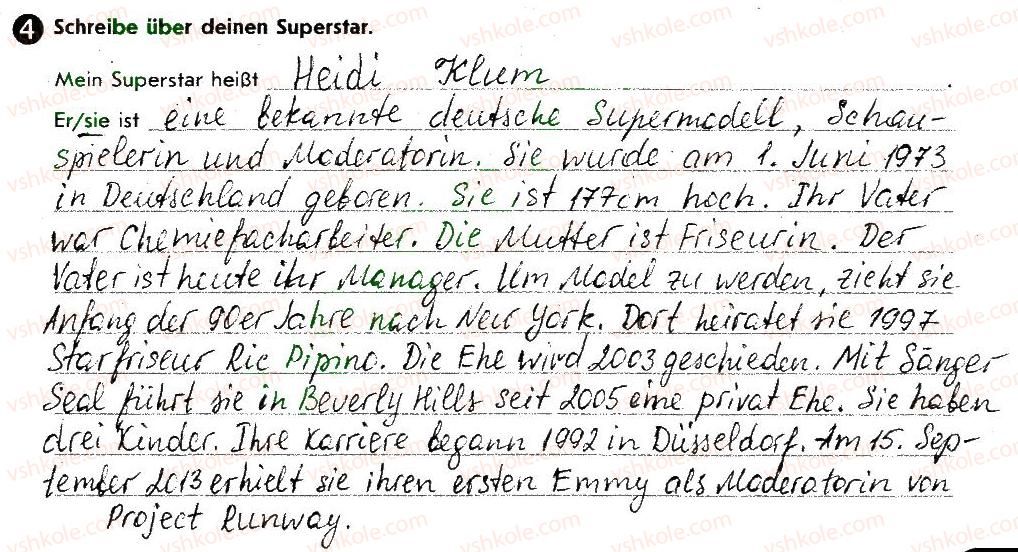 4 Schreibe über deinen Superstar.
Mein Superstar heißt Heidi Klum.
Er/sie ist eine bekannte deutsche Supermodell, Schau-
spielerin und Moderatorin. Sie wurde am 1. Juni 1973
in Deutschland geboren. Sie ist 177cm hoch. Ihr Vater
war Chemiefacharbeiter. Die Mutter ist Friseurin. Der
Vater ist heute ihr Manager. Um Model zu werden, zieht sie
Anfang der 90er Jahre nach New York. Dort heiratet sie 1997
Starfriseur Ric Pipino. Die Ehe wird 2003 geschieden. Mit Sänger
Seal führt sie in Beverly Hills seit 2005 eine privat Ehe. Sie haben
drei Kinder. Ihre Karriere begann 1992 in Düsseldorf. Am 15. Sep-
tember 2013 erhielt sie ihren ersten Emmy als Moderatorin von
Project Runway.
vshkole.com